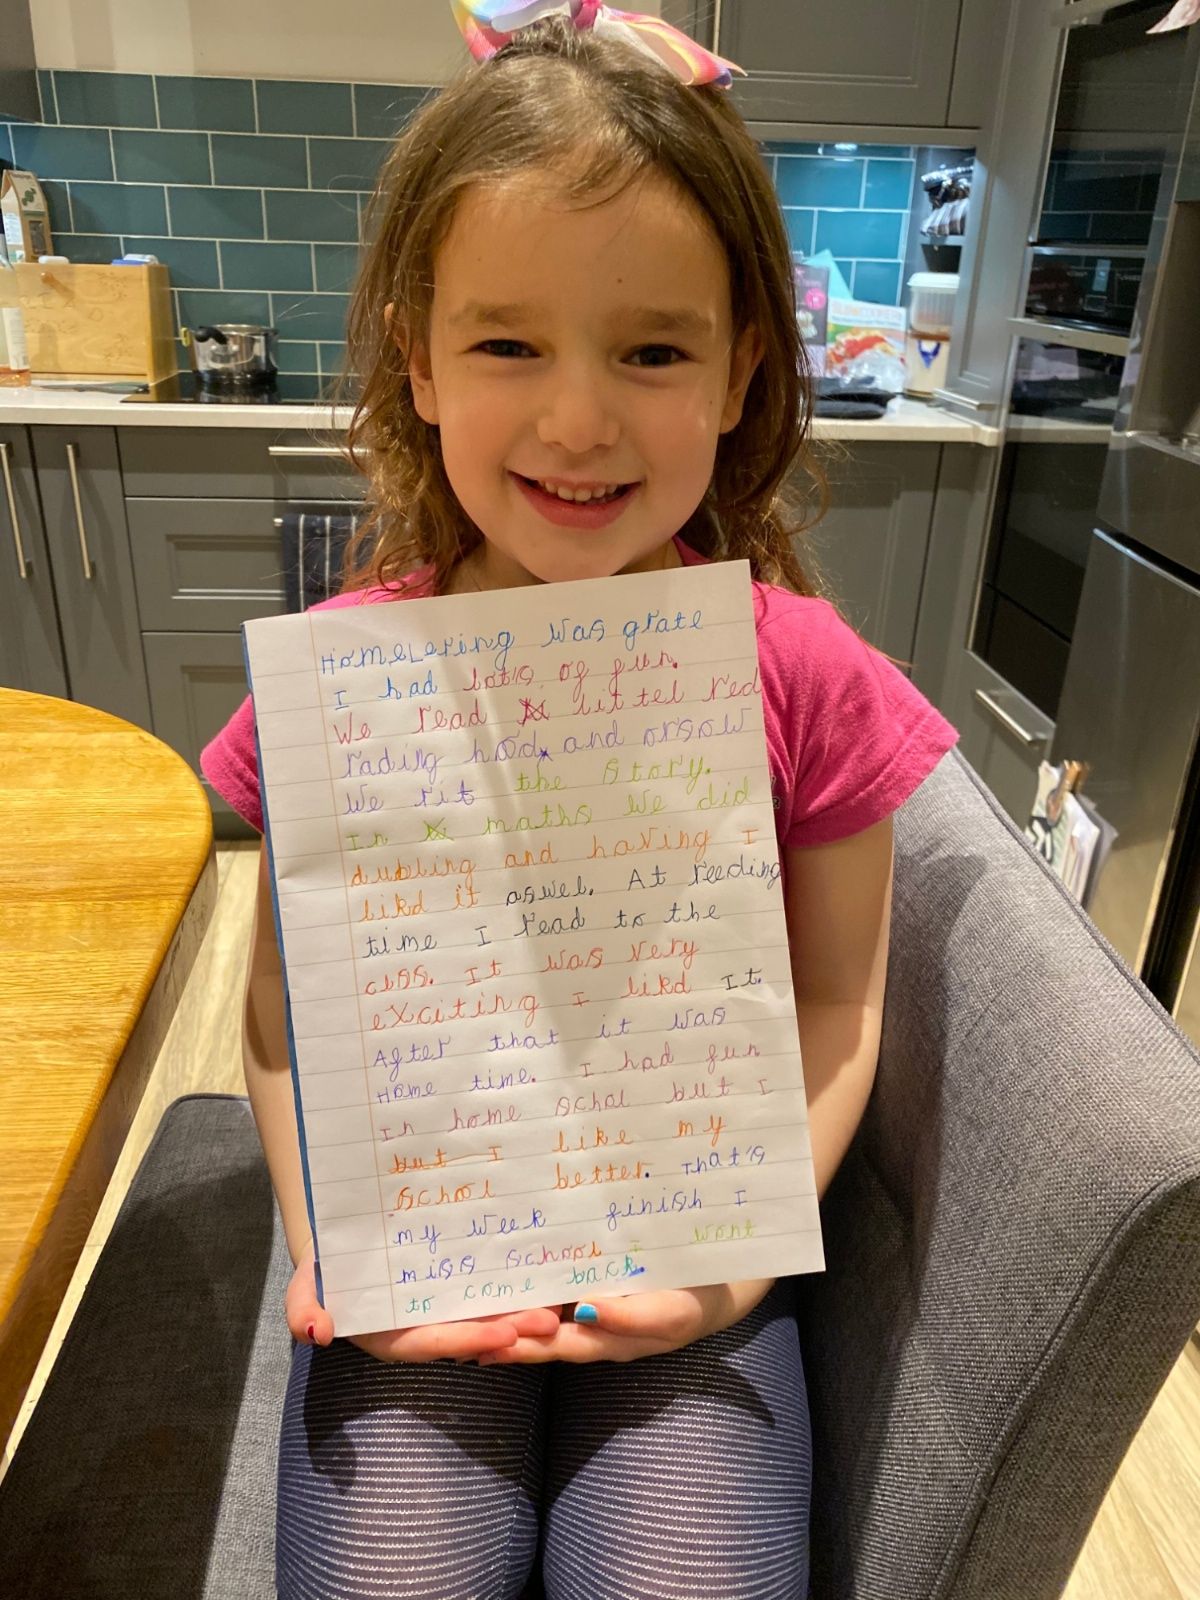 HomeLering was grate
I had lot's of fun.
We read littel red
rading hood and orsow
We rit the story.
In maths We did
dubling and having I
likd it aswel. At reeding
time I read to the
clss. It was very
exciting I likd It.
After that it was
Home time. I had fun
In home schol but I
but I like my
school better. That's
my week finish I
miss school I wont
to come back.